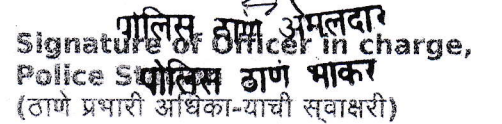 पोलिस ठाणे अंमलदार
Signature of Officer in charge,
Police
पोलिस ठाणे भोकर
(ठाणे प्रभारी अधिका-याची स्वाक्षरी)